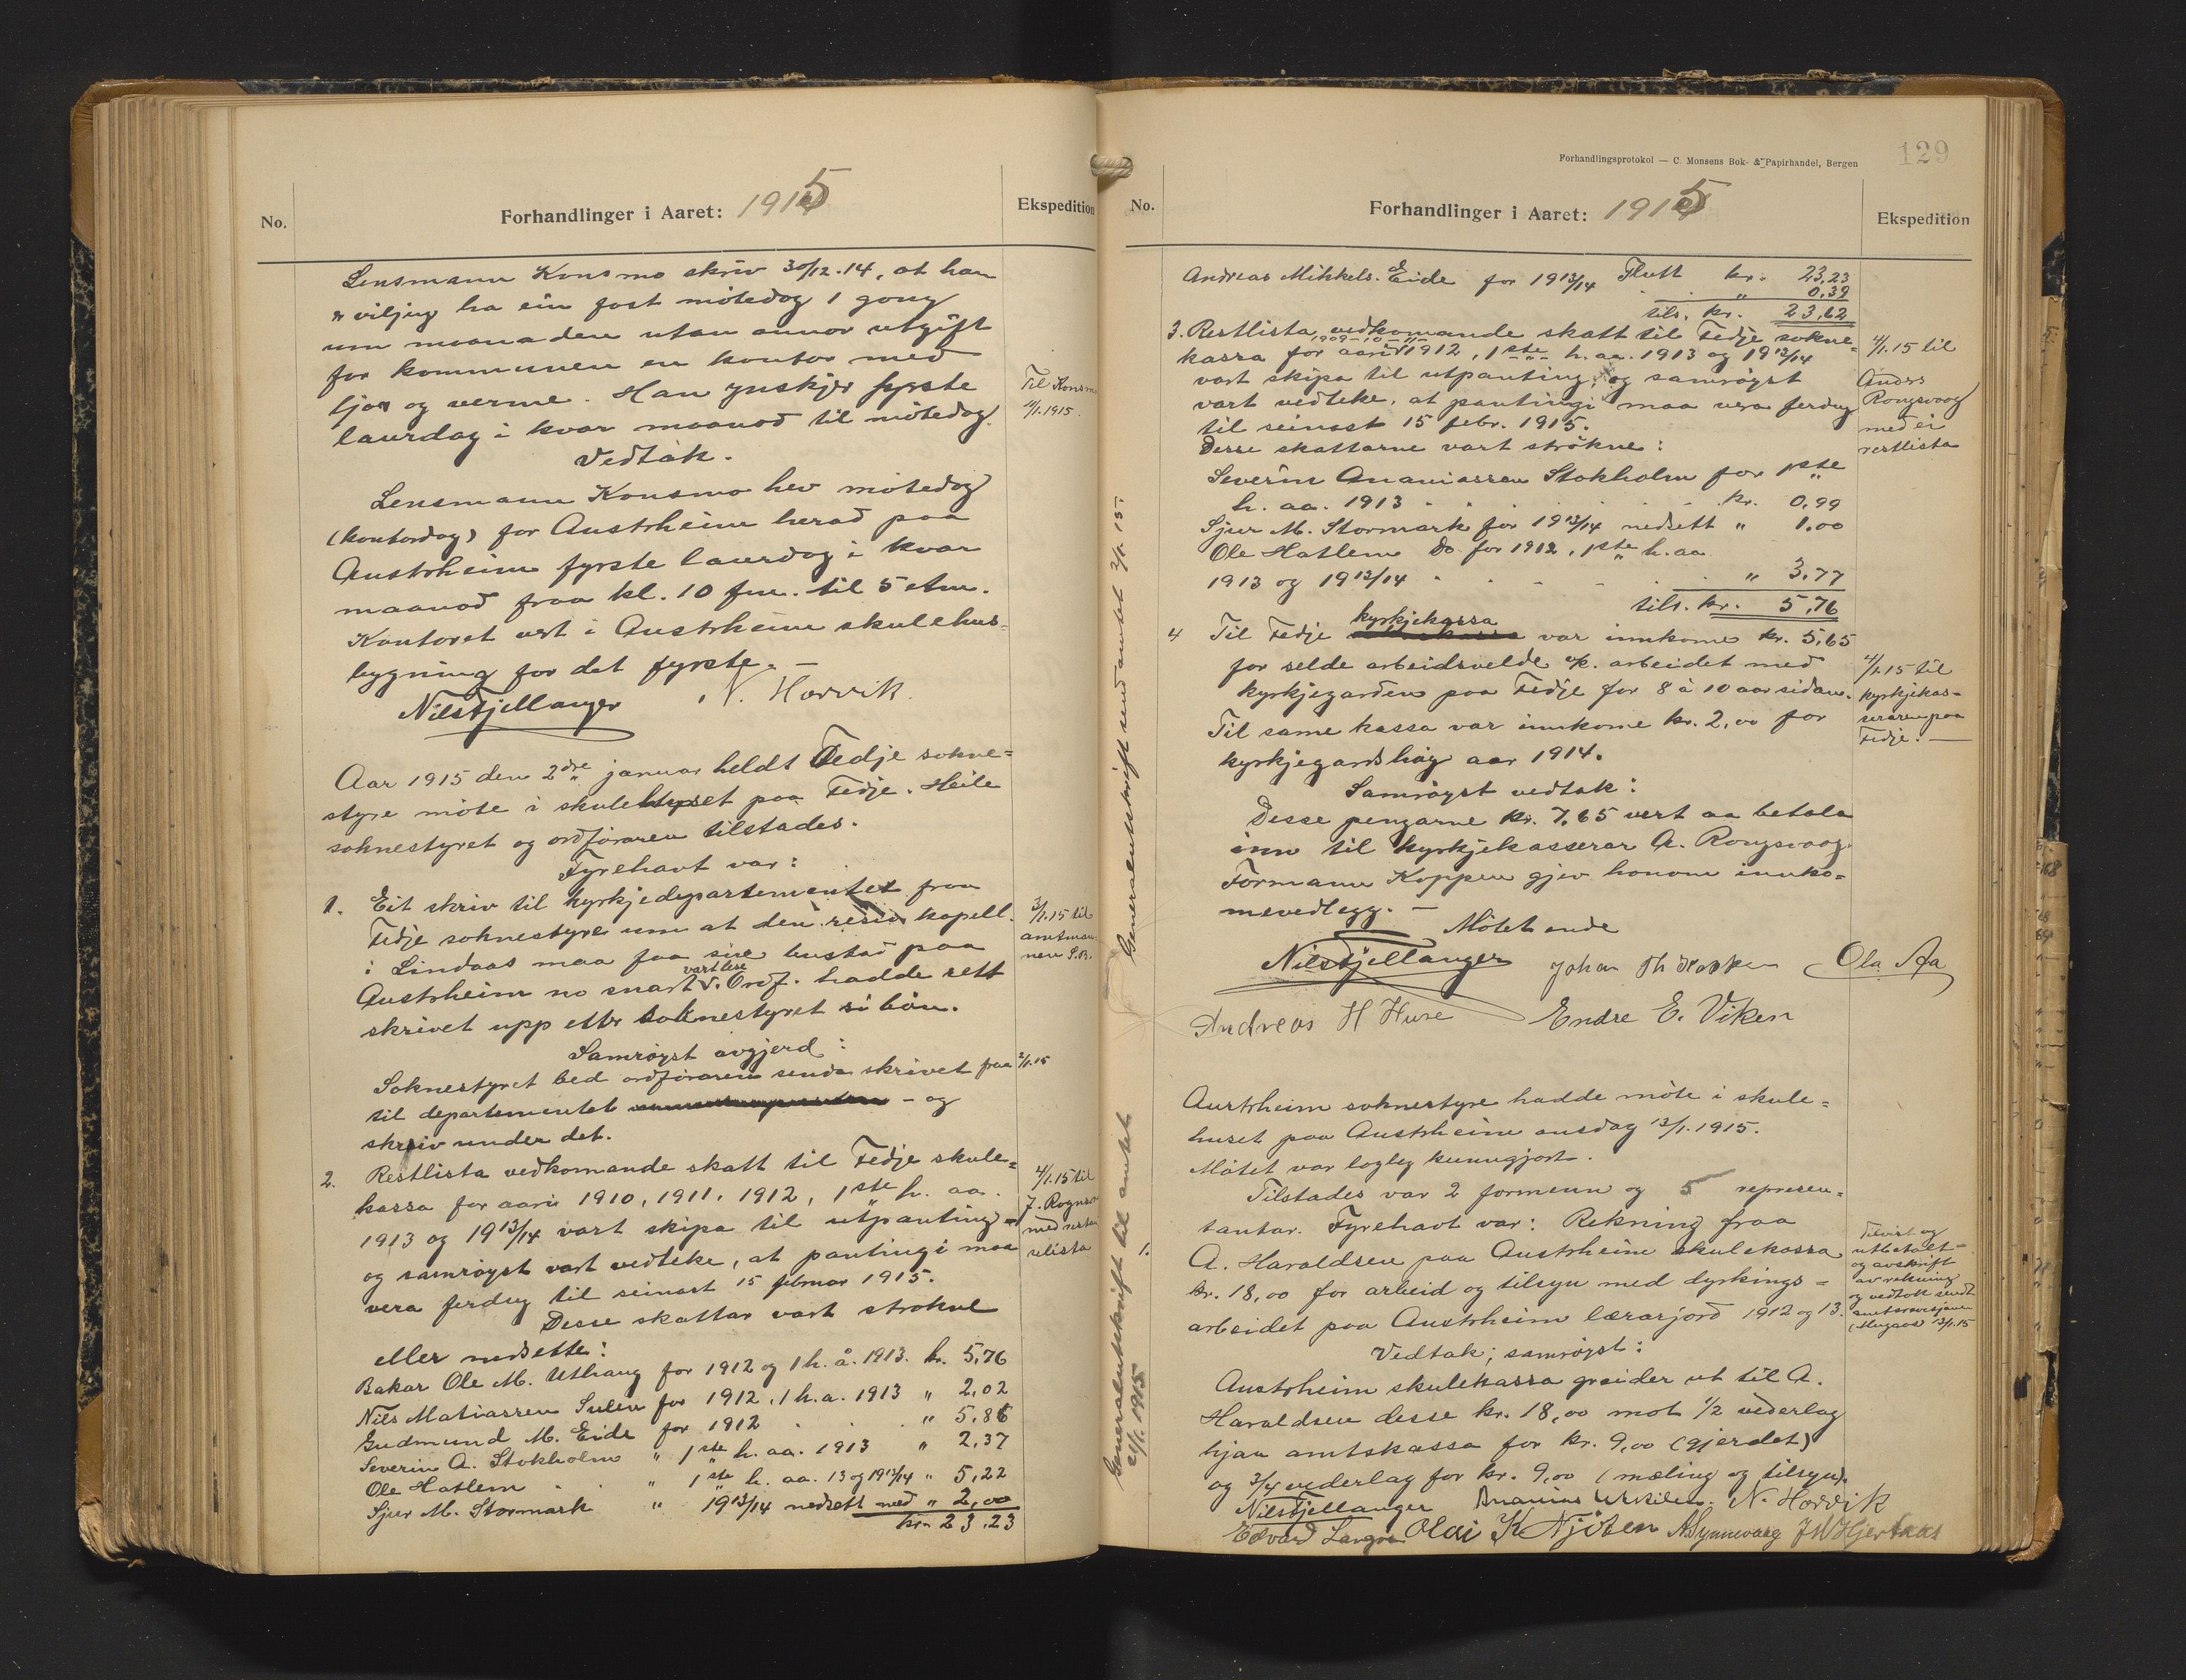 No.
Forhandlinger i Aaret: 1915
Ekspedition
Lensmann Konsmo skriv 30/12-14, at han
er viljug ha ein fast mötedag 1 gong
um maanaden utan annor utgift
for kommunen en kontor med
ljos og verme. Han ynskjer fyrste
laurdag i kvar maanad til mötedag.
Til Konsmo
4/1.1915.
Vedtak.
Lensmann Konsmo hev mötedag
(kontordag) for Austrheim herad paa
Austrheim fyrste laurdag i kvar
maanad fraa kl. 10 fm. til 5 etm.
Kontoret vert i Austrheim skulehus-
bygning for det fyrste. –
Nils Fjellanger N. Hovvik
Aar 1915 den 2dre januar heldt Fedje sokne=
styre möte i skulehuset paa Fedje. Heile
soknestyret og ordföraren tilstades.
Fyrehavt var:
1. Eit skriv til kyrkjedepartementet fraa
Fedje soknestyre um at den resid. kapell.
i Lindaas maa faa sin bustad paa
Austrheim no snart. Ordf. hadde sett
vart lese
skrivet upp etter soknestyret si bön.
3/1.15 til
amtman
nen S.B.
Samröyst avgjerd:
Soknestyret bed ordföraren senda skrivet fraa
2/1.15
til departementet – og
skriv under det.
2. Restlista vedkomande skatt til Fedje skule=
kassa for aari 1910, 1911, 1912, 1ste h. aa.
1913 og 1913/14 vart skipa til utpanting –
og samröyst vart vedteke, at pantingi maa
vera ferdug til seinast 15 februar 1915.
4/1.15 til
med
Desse skattar vart strokne
eller nedsette:
Bakar Ole M. Uthaug for 1912 og 1 h. å. 1913. kr. 5,76
Nils Matiassen Sulen for 1912, 1 h. a. 1913 " 2,02
Gudmund M. Eide for 1912 . . . " 5,86
Severin A. Stokholm " 1ste h. aa. 1913 " 2,37
Ole Hatlem . " 1ste h. aa. 13 og 1913/14 " 5,22
Sjur M. Stormark " 1913/14 nedsett med " 2,00
kr. 23,23
Generalutskrift send amtet 2/1. 15.
Generalutskrift til amtet
21/1. 1915
Forhandlingsprotokol — C. Monsens Bok- & Papirhandel, Bergen
129
No.
Forhandlinger i Aaret: 1915
Ekspedition
Flutt kr. 23,23
Andreas Mikkels. Eide for 1913/14 . . " 0,39
tils. kr. 23,62
3. Restlista vedkomande skatt til Fedje sokne=
1909-10-11-
kassa for aari 1912, 1ste h. aa. 1913 og 1913/14
vart skipa til utpanting, og samröyst
vart vedteke, at pantingi maa vera ferdug
til seinast 15 febr. 1915.
4/1.15 til
Anders
Rongsvaag
med ei
restlista
Desse skattarne vart strökne:
Severin Ananiassen Stokholm for 1ste
h. aa. 1913 . . . . . . kr. 0,99
Sjur M. Stormark for 1913/14 nedsett " 1,00
Ole Hatlem Do for 1912, 1ste h. aa
1913 og 1913/14 . . . . . " 3,77
tils. kr. 5,76
kyrkjekassa
4 Til Fedje var innkome kr. 5,65
for selde arbeidsvelde v/k. arbeidet med
kyrkjegarden paa Fedje for 8 à 10 aar sidan.
Til same kassa var innkome kr. 2,00 for
kyrkjegardshög aar 1914.
4/1.15 til
kyrkjekas-
seraren paa
Fedje. –
Samröyst vedtak:
Desse pengarne kr. 7,65 vert aa betala
inn til kyrkjekasserar A. Rongsvaag.
Formann Koppen gjev honom innko=
mevedlegg. –
Mötet ende
Nils Fjellanger Johan Th Koppen Ola Aa
Andreas H Huse Endre E. Viken
Austrheim soknestyre hadde möte i skule=
huset paa Austrheim onsdag 13/1. 1915.
Mötet var logleg kunngjort.
Tilstades var 2 formenn og 5 represen=
tantar. Fyrehavt var: Rekning fraa
1. A. Haraldsen paa Austrheim skulekassa
kr. 18,00 for arbeid og tilsyn med dyrkings=
arbeidet paa Austrheim lærarjord 1912 og 13.
Tilvist og
utbetalt –
og avskrift
av rekning
og vedtak sendt
amtsrevisjonen
(Mugaas) 13/1.15
Vedtak; samröyst:
Austrheim skulekassa greider ut til A.
Haraldsen desse kr. 18,00 mot 1/2 vederlag
hjaa amtskassa for kr. 9,00 (gjerdet)
og 3/4 vederlag for kr. 9,00 (mæling og tilsyn).
Nils Fjellanger Ananias N. Hovvik
Edvard Olai K Njöten A Synnevaag J W Hjertaas